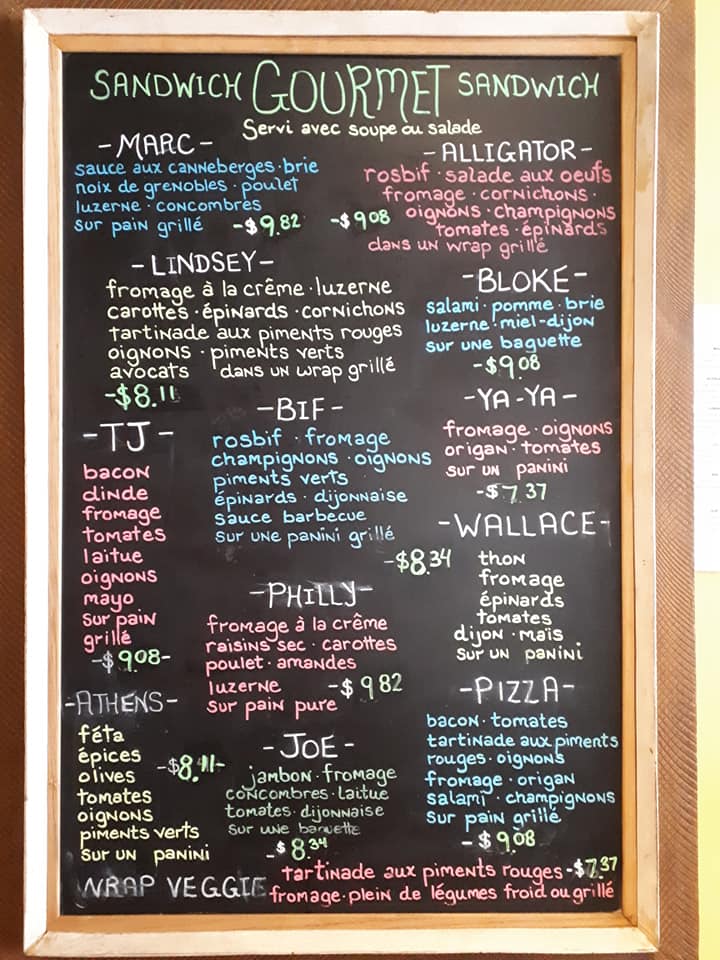 SANDWICH GOURMET SANDWICH
Servi avec soupe ou salade
-MARC-
sauce aux canneberges·brie
noix de grenobles · poulet
luzerne · concombres
sur pain grillé -$9.82
-ALLIGATOR-
rosbif · salade aux oeufs
fromage · cornichons ·
oignons · champignons
tomates · épinards
dans un wrap grillé
-$9.08
-LINDSEY-
fromage à la crême · luzerne
carottes · épinards · cornichons
tartinade aux piments rouges
oignons · piments verts
avocats dans un wrap grillé
-$8.11
-BLOKE-
salami · pomme · brie
luzerne · miel-dijon
sur une baguette
-$9.08
-BIF-
rosbif · fromage
champignons · oignons
piments verts
épinards · dijonnaise
sauce barbecue
sur une panini grillé
-$8.34
-YA-YA-
fromage · oignons
origan · tomates
sur un panini
-$7.37
-TJ-
bacon
dinde
fromage
tomates
laitue
oignons
mayo
sur pain
grillé
-$9.08-
-WALLACE-
thon
fromage
épinards
tomates
dijon · maïs
sur un panini
-PHILLY-
fromage à la crême
raisins sec · carottes
poulet · amandes
luzerne -$9.82
sur pain pure
-ATHENS-
féta
épices
olives -$8.11-
tomates
oignons
piments verts
sur un panini
-JOE-
jambon · fromage
concombres · laitue
tomates · dijonnaise
sur une baguette
-$8.34
-PIZZA-
bacon · tomates
tartinade aux piments
rouges · oignons
fromage · origan
salami · champignons
sur pain grillé
-$9.08
WRAP VEGGIE
tartinade aux piments rouges -$7.37
fromage · plein de légumes froid ou grillé